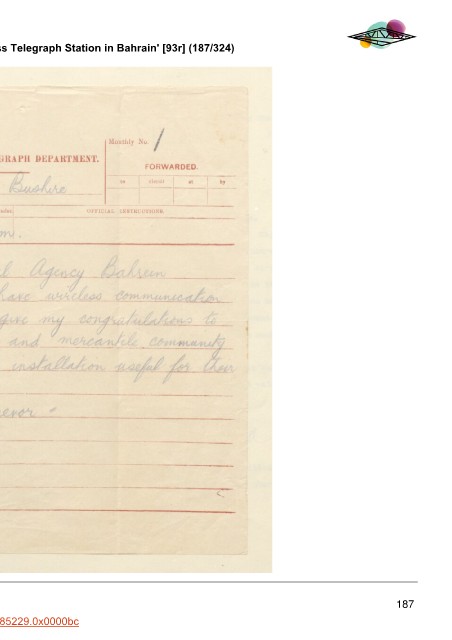 ss Telegraph Station in Bahrain' [93r] (187/324)
Monthly No. 1
GRAPH DEPARTMENT.
FORWARDED.
to at by
Bushire
OFFICIAL INSTRUCTIONS
m.
l Agency Bahrein
have wireless communication
give my congratulations to
and mercantile community
installation useful for their
evor
187
85229.0x0000bc